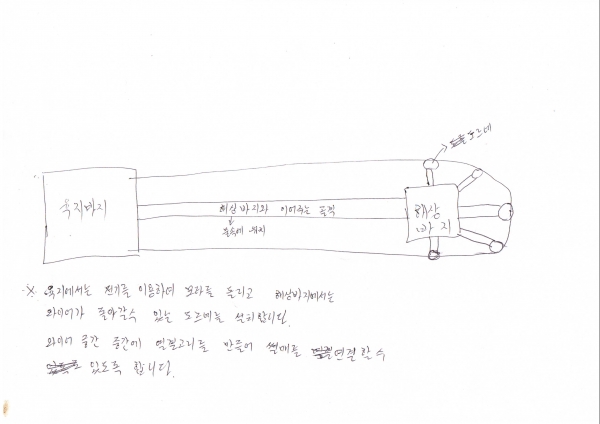 도르레
육지바지
해상바지와 이어주는 동력
물속에 위치
해상
바지
※ 육지에서는 전기를 이용하여 모타를 돌리고 해상바지에서는
와이어가 돌아갈수 있는 도르레를 설치합니다.
와이어 중간 중간에 연결고리를 만들어 썰매를 연결할수
있도록 합니다.